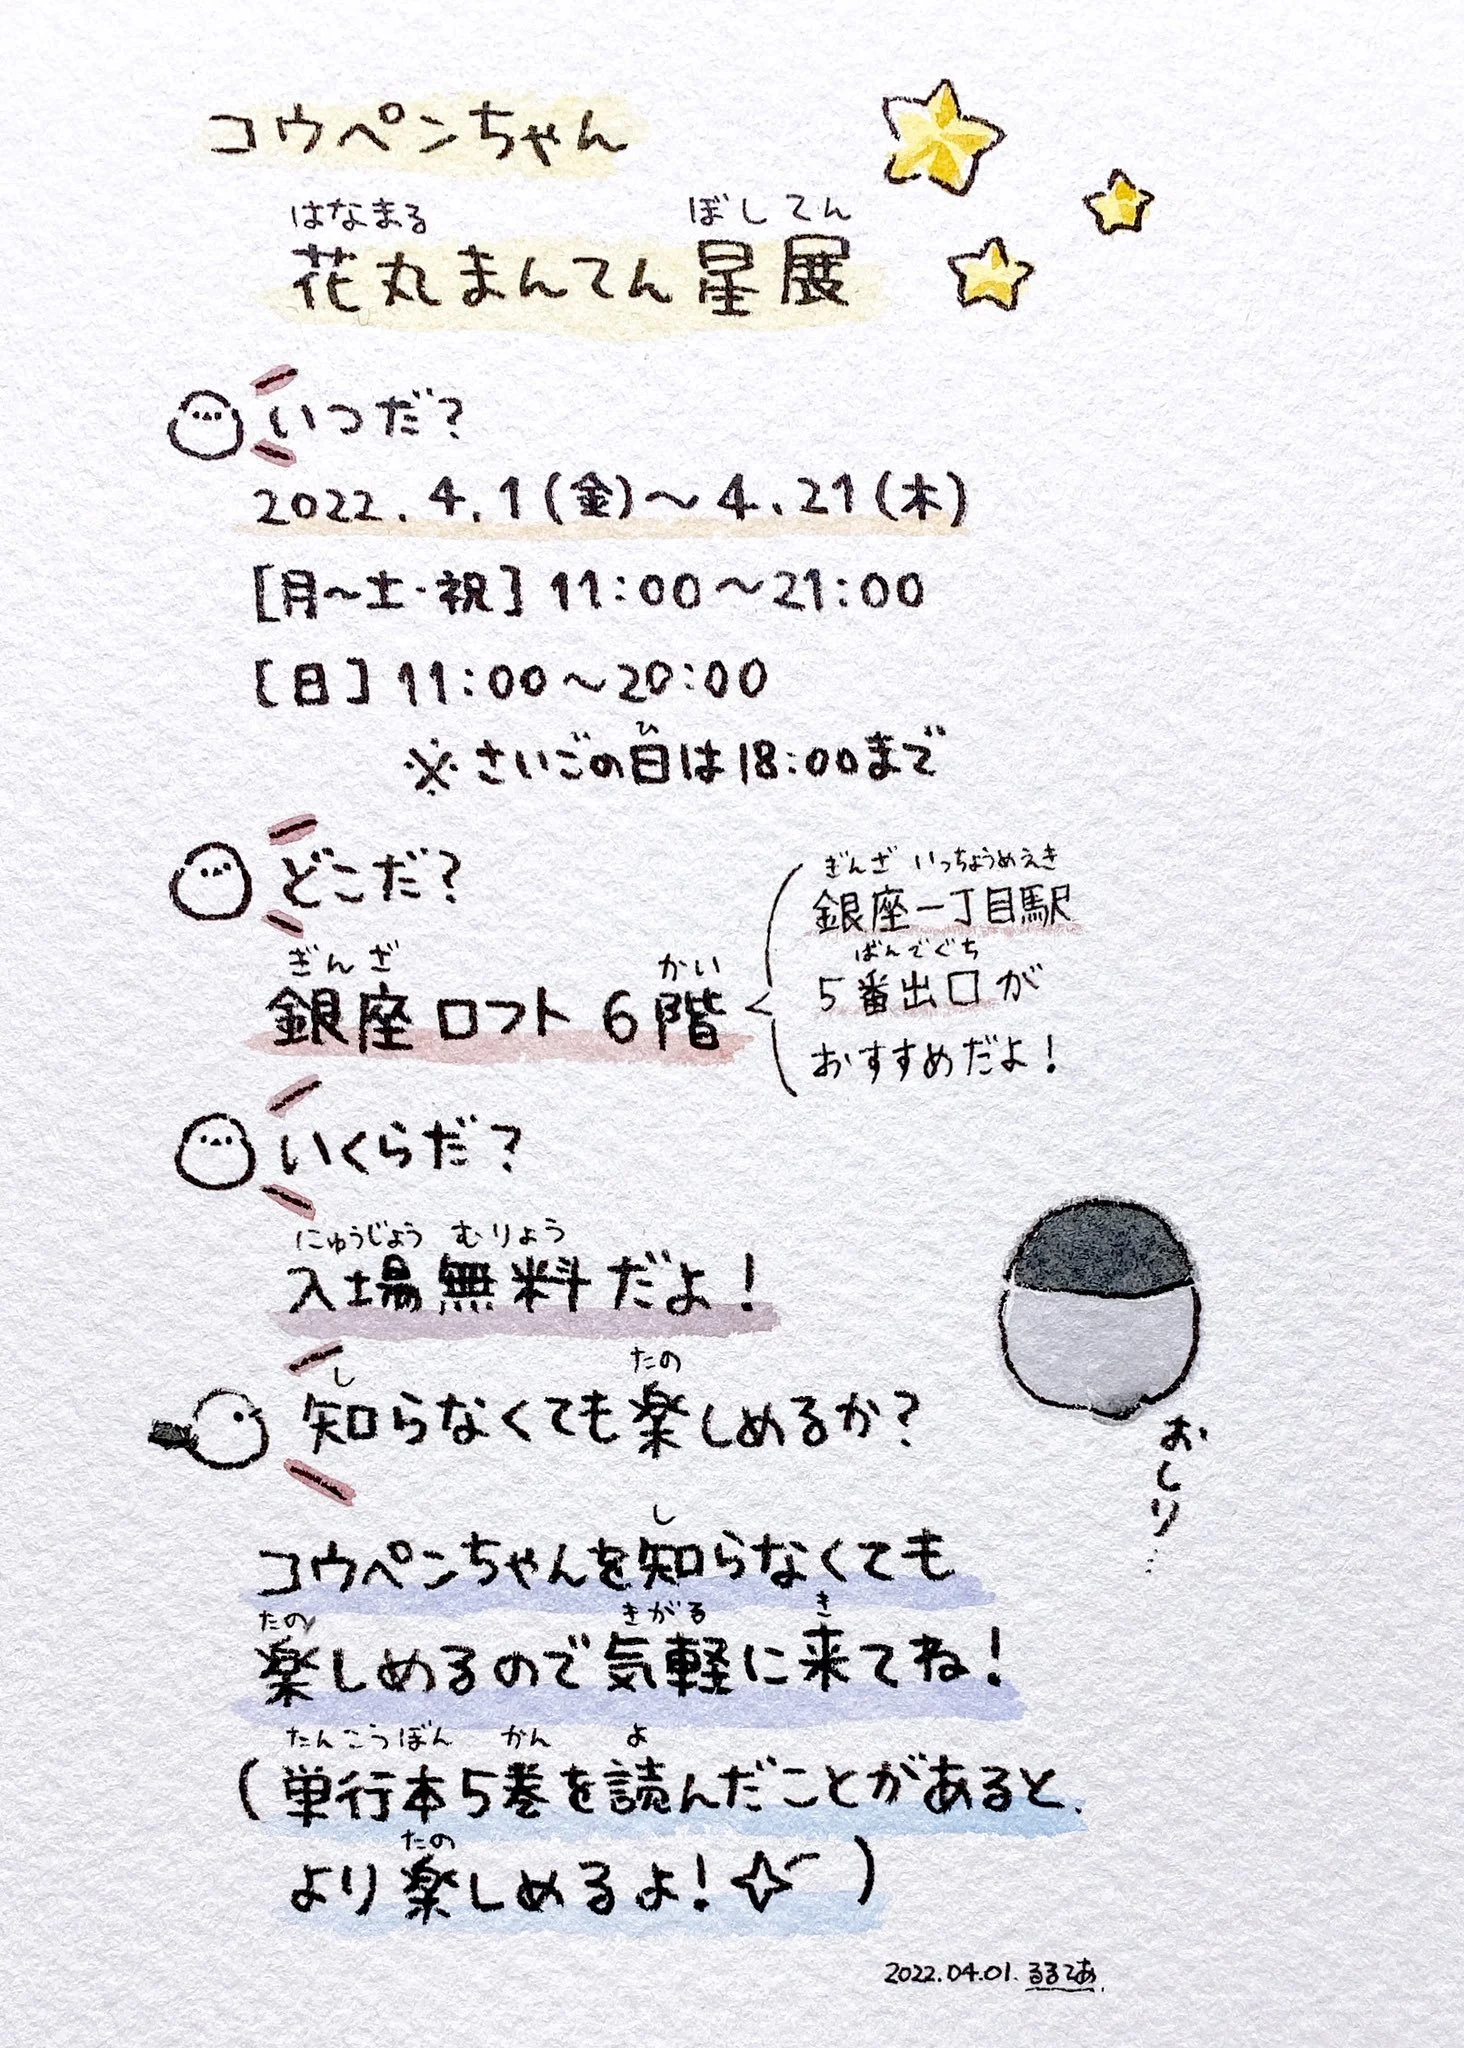 コウペンちゃん
はなまる ぼしてん
花丸まんてん星展
いつだ?
2022.4.1(金)～4.21(木)
[月～土・祝]11:00～21:00
[日]11:00～20:00
ひ
※さいごの日は18:00まで
どこだ?
ぎんざ かい
銀座ロフト6階
ぎんざ いっちょうめえき
銀座一丁目駅
ばんでぐち
5番出口が
おすすめだよ!
いくらだ?
にゅうじょう むりょう
入場無料だよ!
し たの
知らなくても楽しめるか?
おしり…
し
コウペンちゃんを知らなくても
たの きがる き
楽しめるので気軽に来てね!
たんこうぼん かん よ
(単行本5巻を読んだことがあると、
たの
より楽しめるよ!)
2022.04.01.るるてあ